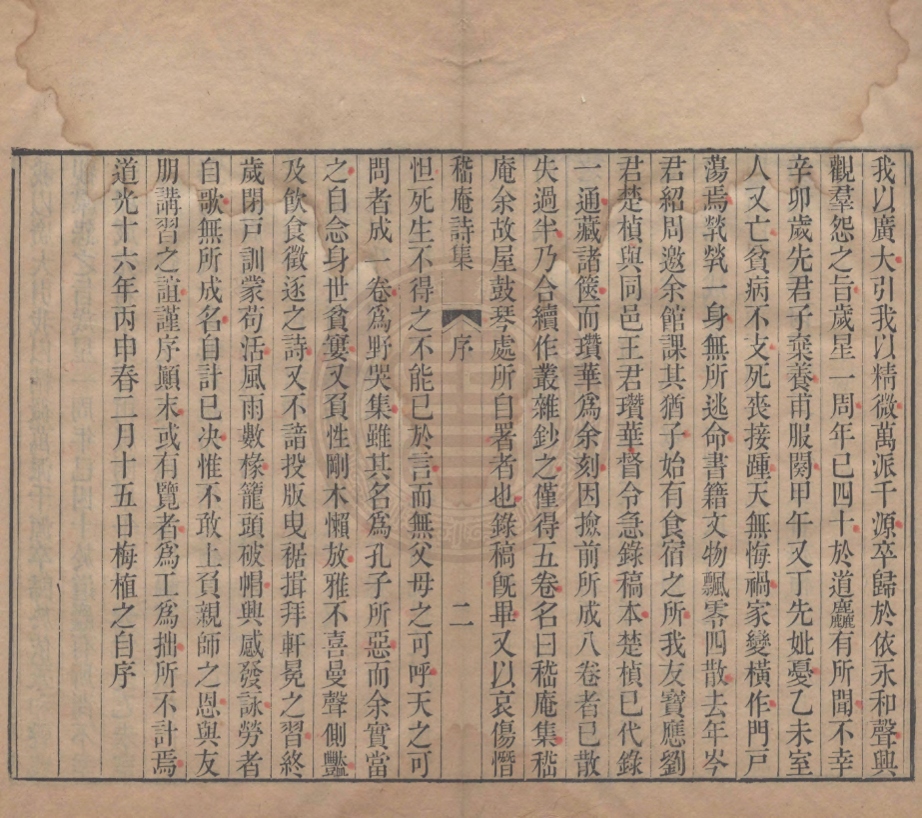 我以廣大引我以精微萬派千源卒歸於依永和聲興
觀羣怨之旨歲星一周年已四十於道麤有所聞不幸
辛卯歲先君子棄養甫服闋甲午又丁先妣憂乙未室
人又亡貧病不支死喪接踵天無悔禍家變橫作門戸
蕩焉煢煢一身無所逃命書籍文物飄零四散去年岑
君紹周邀余館課其猶子始有食宿之所我友寶應劉
君楚楨與同邑王君瓚華督令急錄稿本楚楨已代錄
一通藏諸篋而瓚華爲余刻因撿前所成八卷者已散
失過半乃合續作叢雜鈔之僅得五卷名曰嵇庵集嵇
庵余故屋鼓琴處所自署者也錄稿旣畢又以哀傷憯
嵇庵詩集 序 二
怛死生不得之不能已於言而無父母之可呼天之可
問者成一卷爲野哭集雖其名爲孔子所惡而余實當
之自念身世貧窶又負性剛木懶放雅不喜曼聲側豔
及飲食徵逐之詩又不諳投版曳裾揖拜軒冕之習終
歲閉戸訓蒙苟活風雨數椽籠頭破帽興感發詠勞者
自歌無所成名自計已决惟不敢上負親師之恩與友
朋講習之誼謹序顚末或有覽者爲工爲拙所不計焉
道光十六年丙申春二月十五日梅植之自序